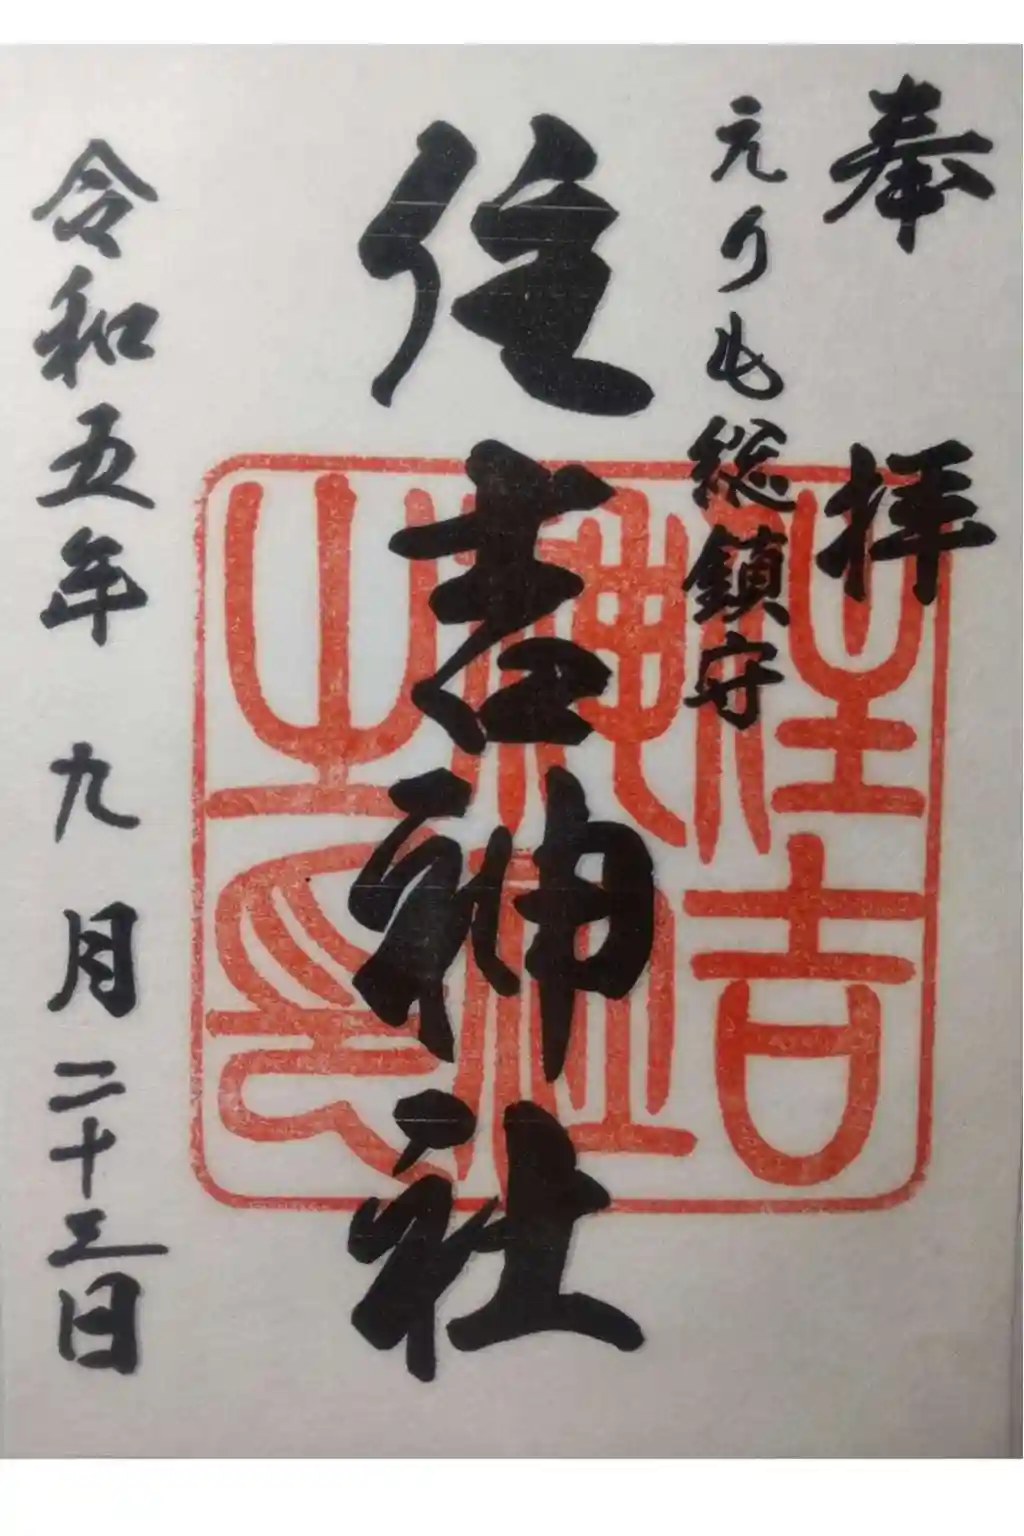 奉拝
えりも総鎮守
住吉神社
住吉
神社
之印
令和五年九月二十三日